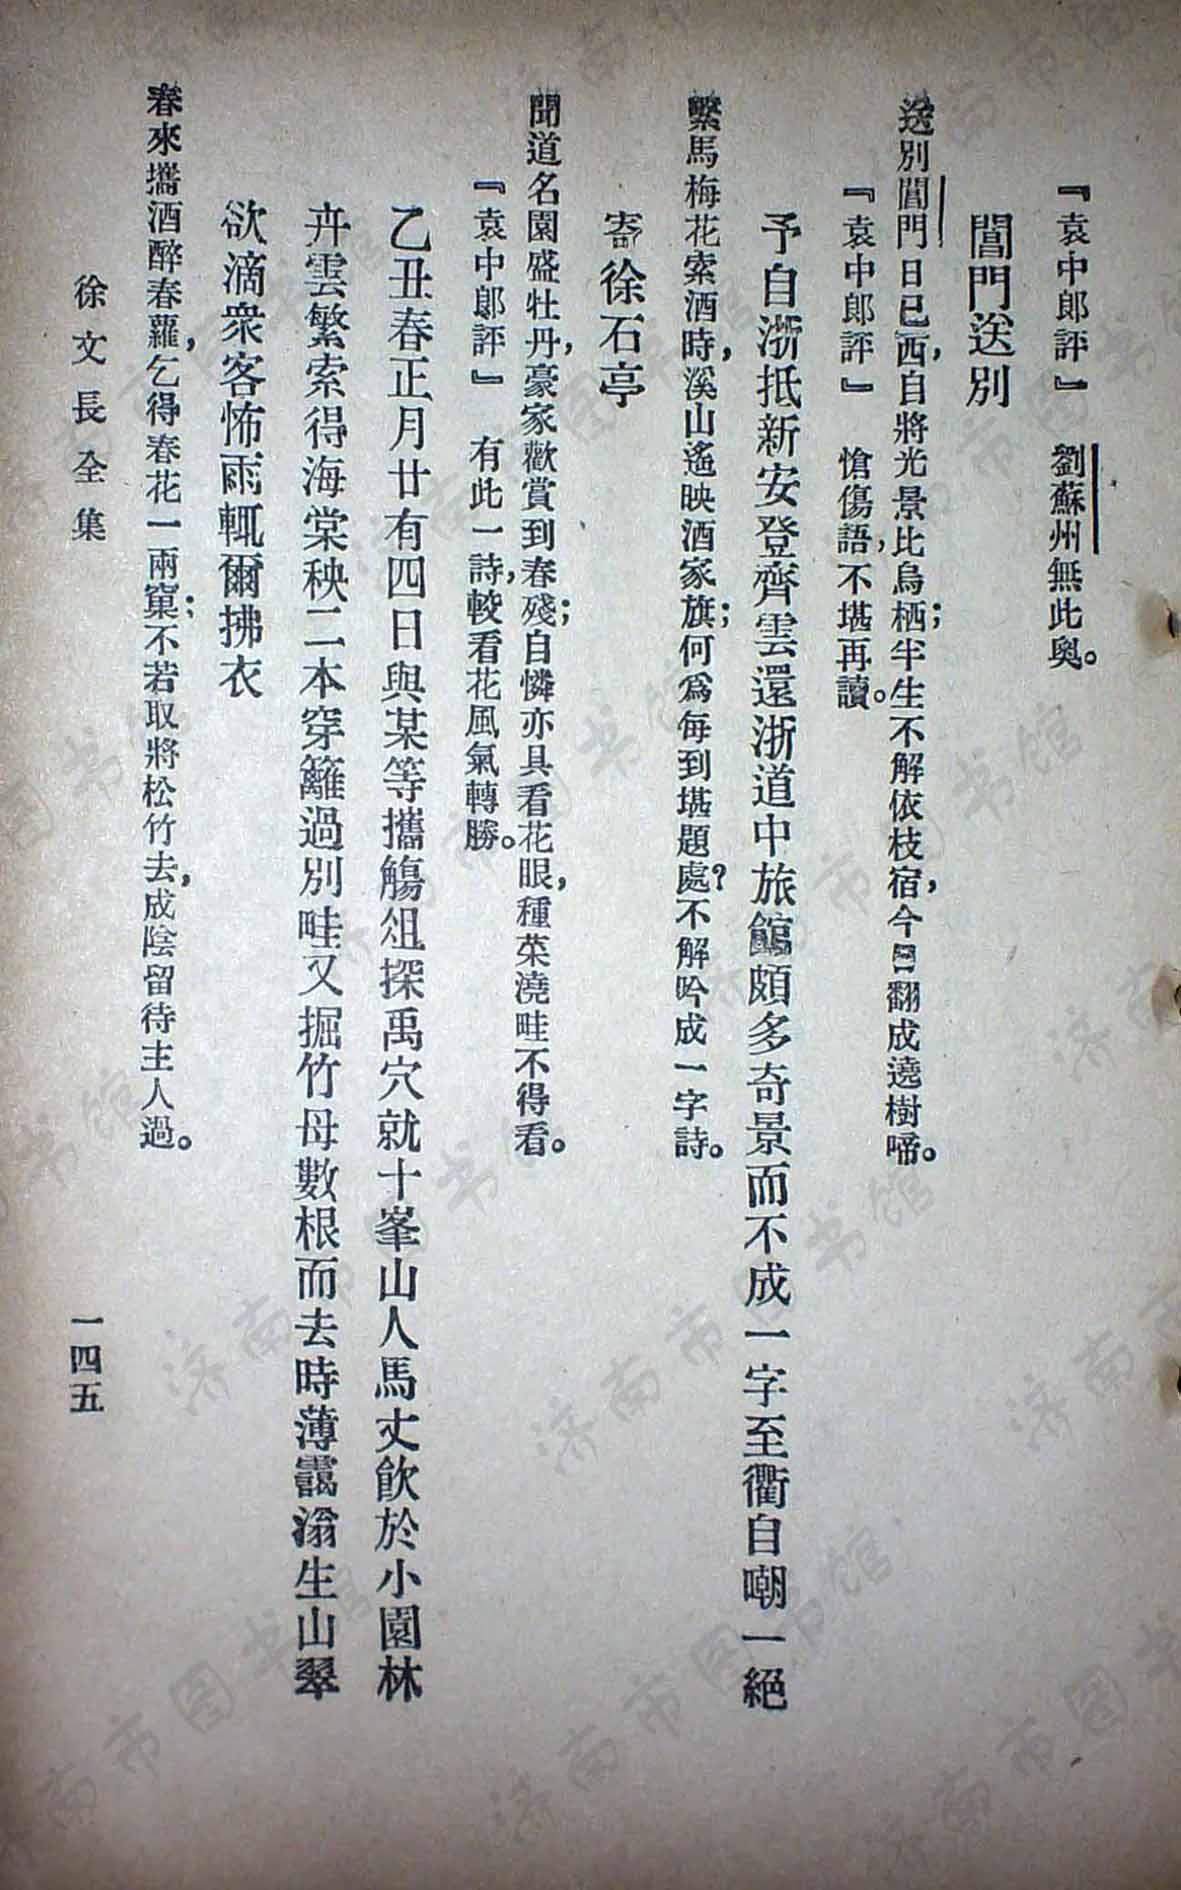 『袁中郞評』　劉蘇州無此奥。
閶門送別
送別閶門日已西，自將光景比烏栖；半生不解依枝宿，今日翻成遶樹啼。
『袁中郞評』　愴傷語，不堪再讀。
予自浙抵新安登齊雲還浙道中旅館頗多奇景而不成一字至衢自嘲一絕
繫馬梅花索酒時，溪山遙映酒家旗；何爲每到堪題處？不解吟成一字詩。
寄徐石亭
聞道名園盛牡丹，豪家歡賞到春殘；自憐亦具看花眼，種菜澆畦不得看。
『袁中郞評』　有此一詩，較看花風氣轉勝。
乙丑春正月廿有四日與某等攜觴俎探禹穴就十峯山人馬丈飮於小園林
卉雲繁索得海棠秧二本穿籬過別畦又掘竹母數根而去時薄靄滃生山翠
欲滴衆客怖雨輒爾拂衣
春來攜酒醉春蘿，乞得春花一兩窠；不若取將松竹去，成陰留待主人過。
徐文長全集
一四五
济南市图书馆